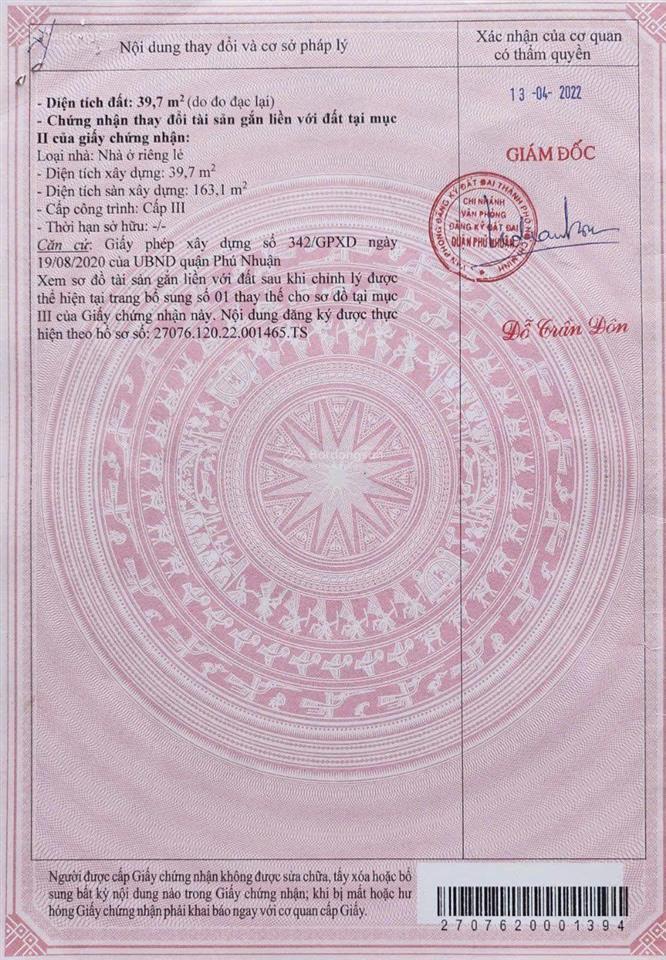 Nội dung thay đổi và cơ sở pháp lý
Xác nhận của cơ quan
có thẩm quyền
- Diện tích đất: 39,7 m² (do đo đạc lại)
- Chứng nhận thay đổi tài sản gắn liền với đất tại mục
II của giấy chứng nhận:
Loại nhà: Nhà ở riêng lẻ
- Diện tích xây dựng: 39,7 m²
- Diện tích sàn xây dựng: 163,1 m²
- Cấp công trình: Cấp III
- Thời hạn sở hữu: -/-
Căn cứ: Giấy phép xây dựng số 342/GPXD ngày
19/08/2020 của UBND quận Phú Nhuận
Xem sơ đồ tài sản gắn liền với đất sau khi chỉnh lý được
thể hiện tại trang bổ sung số 01 thay thế cho sơ đồ tại mục
III của Giấy chứng nhận này. Nội dung đăng ký được thực
hiện theo hồ sơ số: 27076.120.22.001465.TS
13 -04- 2022
GIÁM ĐỐC
VĂN PHÒNG ĐĂNG KÝ ĐẤT ĐAI THÀNH PHỐ HỒ CHÍ MINH
CHI NHÁNH
VĂN PHÒNG
ĐĂNG KÝ ĐẤT ĐAI
QUẬN PHÚ NHUẬN
Đỗ Trần Đôn
Batdongsan
Người được cấp Giấy chứng nhận không được sửa chữa, tẩy xóa hoặc bổ
sung bất kỳ nội dung nào trong Giấy chứng nhận; khi bị mất hoặc hư
hỏng Giấy chứng nhận phải khai báo ngay với cơ quan cấp Giấy.
2707620001394